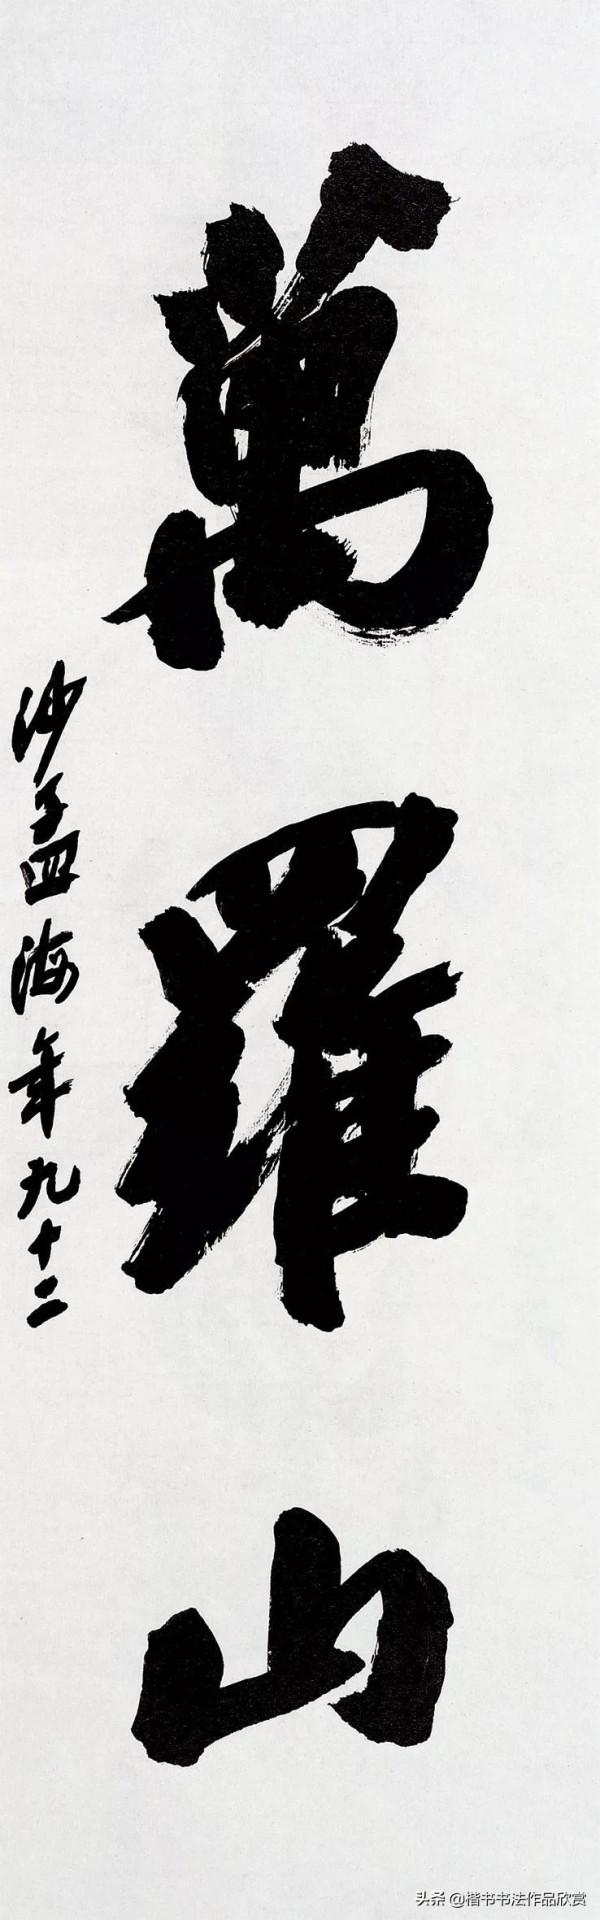 萬羅山
沙孟海年九十二
头条 @楷书书法作品欣赏